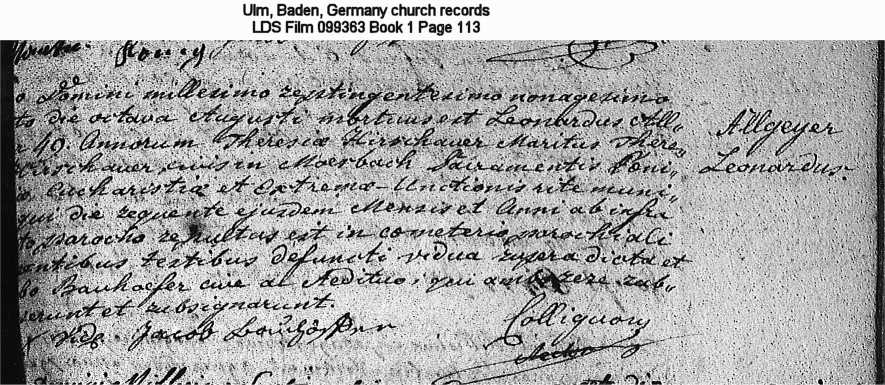 Ulm, Baden, Germany church records
LDS Film 099363 Book 1 Page 113
o Domini millesimo zeptingentesimo nonagesimo
to die octava Augusti mortuus est Leonardus All„
49. Annorum Theresiæ Hirschauer Maritus There„
Hirschauer, civis in Moesbach Sacramentis Pœni„
Eucharistiæ et Extremæ-Unctionis rite muni„
qui die zequente ejusdem Mensis et Anni ab infra
to parocho zepultus est in cometerio parochiali
antibus testibus defuncti vidua zupera dicta et
bo Bauhoefer cive ac Aedituo, qui
erunt et zubsignarunt.
Jacob
Collignon
Allgeyer
Leonardus.